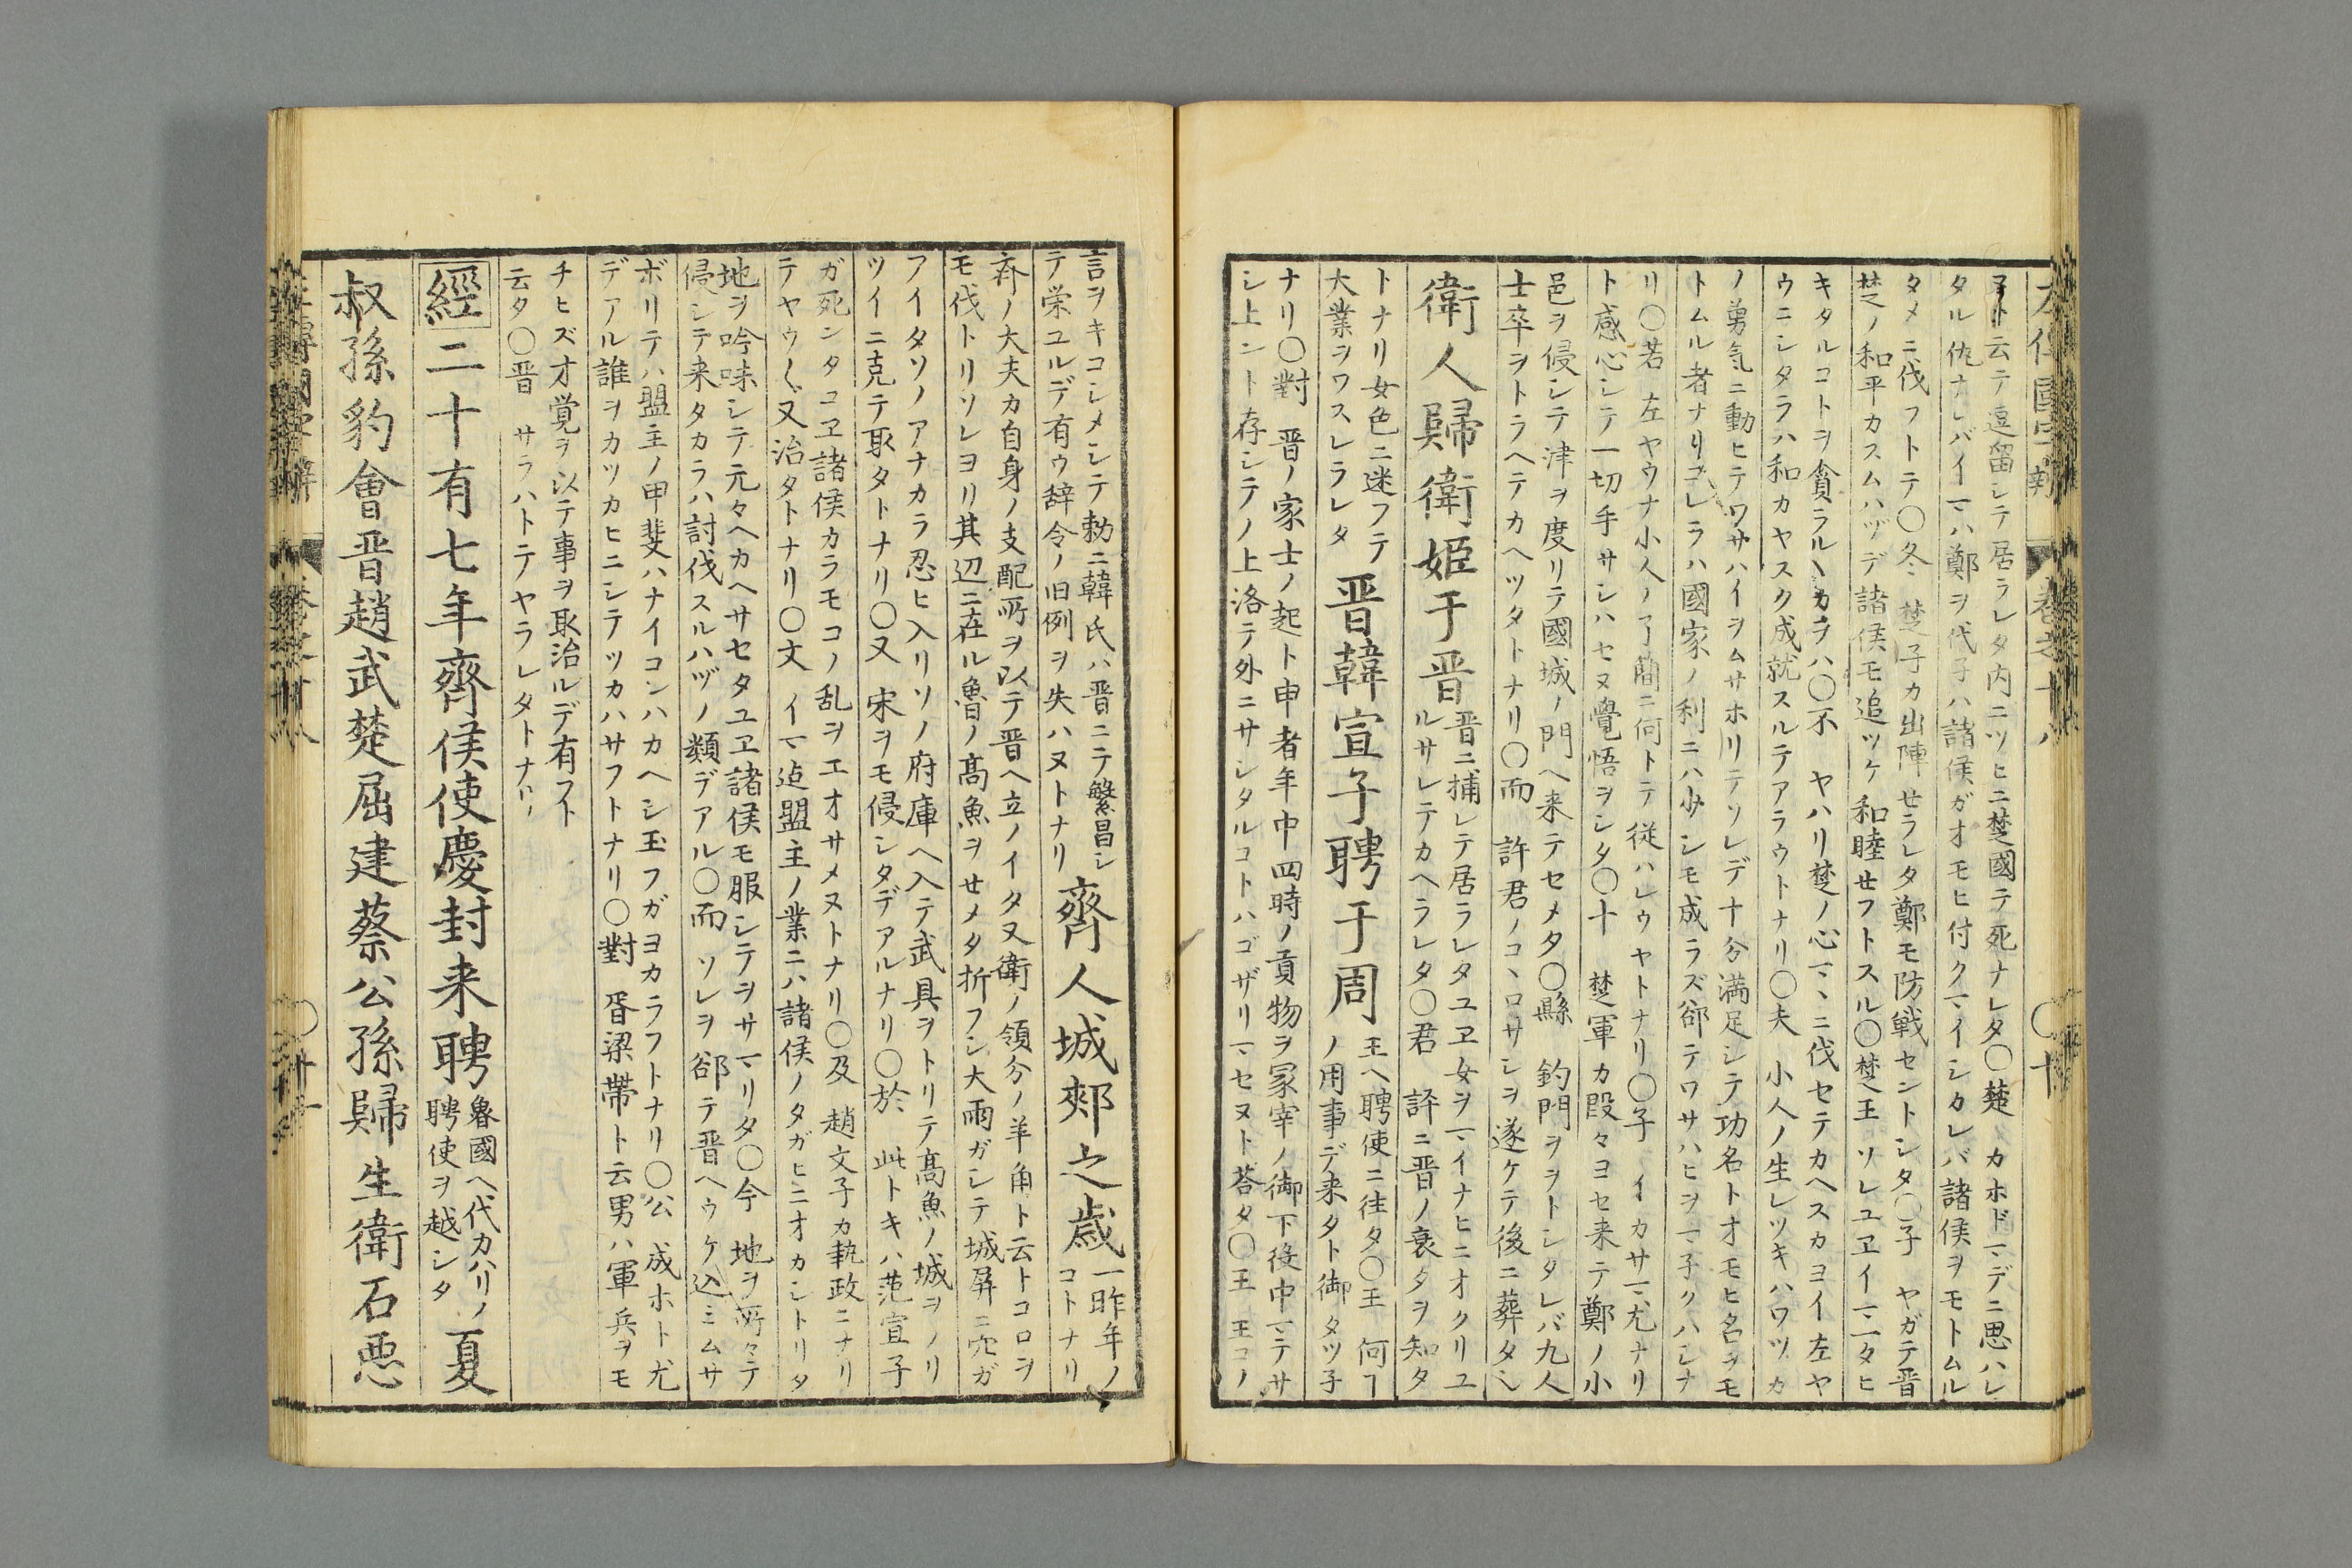 ヌト云テ逗留シテ居ラレタ内ニツヒニ楚國テ死ナレタ〇楚 カホドマデニ思ハレ
タル仇ナレバイマハ鄭ヲ代子ハ諸侯ガオモヒ付クマイシカレバ諸侯ヲモトムル
タメニ伐フトテ〇冬 楚子カ出陣セラレタ鄭モ防戦セントシタ〇子 ヤガテ晋
楚ノ和平カスムハヅデ諸侯モ追ツケ和睦セフトスル〇楚王 ソレユヱイマ一タヒ
キタルコトヲ貪ラルヽカヲハ〇不 ヤハリ楚ノ心マヽニ伐セテカヘスカヨイ左ヤ
ウニシタラハ和カヤスク成就スルテアラウトナリ〇夫 小人ノ生レツキハワツカ
ノ勇気ニ動ヒテワサハイヲムサホリテソレデ十分満足シテ功名トオモヒ名ヲモ
トムル者ナリコレラハ國家ノ利ニハ少シモ成ラズ郤テワサハヒヲマ子クハシナ
リ〇若 左ヤウナ小人ノ了簡ニ何トテ従ハレウヤトナリ〇子 イカサマ尤ナリ
ト感心シテ一切手サシハセヌ覺悟ヲシタ〇十 楚軍カ段々ヨセ来テ鄭ノ小
邑ヲ侵シテ津ヲ度リテ國城ノ門ヘ来テセメタ〇縣 釣門ヲヲトシタレバ九人
士卒ヲトラヘテカヘツタトナリ〇而 許君ノコヽロサシヲ遂ケテ後ニ葬タシ
衛人歸衛姫于晋
晋ニ捕レテ居ラレタユヱ女ヲマイナヒニオクリユ
ルサレテカヘラレタ〇君 評ニ晋ノ衰タヲ知タ
トナリ女色ニ迷フテ
大業ヲワスレラレタ
晋韓宣子聘于周
王ヘ聘使ニ往タ〇王 何ー
ノ用事デ来タト御タツ子
ナリ〇對 晋ノ家士ノ起ト申者年中四時ノ貢物ヲ冢宰ノ御下役中マテサ
シ上ント存シテノ上洛テ外ニサシタルコトハゴザリマセヌト荅タ〇王 王コノ
言ヲキコシメシテ勅ニ韓氏ハ晋ニテ繁昌シ
テ栄ユルデ有ウ辞令ノ旧例ヲ失ハヌトナリ
齊人城郟之歳
一昨年ノ
コトナリ
斉ノ大夫カ自身ノ支配所ヲ以テ晋ヘ立ノイタ又衛ノ領分ノ羊角ト云トコロヲ
モ伐トリソレヨリ其辺ニ在ル魯ノ髙魚ヲセメタ折フシ大雨ガシテ城屏ニ穴ガ
アイタソノアナカラ忍ヒ入リソノ府庫ヘ入テ武具ヲトリテ髙魚ノ城ヲノリ
ツイニ克テ取タトナリ〇又 宋ヲモ侵シタデアルナリ〇於 此トキハ范宣子
ガ死ンタユヱ諸侯カラモコノ乱ヲエオサメヌトナリ〇及 趙文子カ執政ニナリ
テヤウ〱又治タトナリ〇文 イマ迠盟主ノ業ニハ諸侯ノタガヒニオカシトリタ
地ヲ吟味シテ元々ヘカヘサセタユヱ諸侯モ服シテヲサマリタ〇今 地ヲ所々テ
侵シテ来タカラハ討伐スルハヅノ類デアル〇而 ソレヲ郤テ晋ヘウケ込ミムサ
ボリテハ盟主ノ甲斐ハナイコンハカヘシ玉フガヨカラフトナリ〇公 成ホト尤
デアル誰ヲカツカヒニシテツカハサフトナリ〇對 胥梁帶ト云男ハ軍兵ヲモ
チヒズオ覚ヲ以テ事ヲ取治ルデ有フト
云タ〇晋 サラハトテヤラレタトナリ
經二十有七年齊侯使慶封来聘
魯國ヘ代カハリノ
聘使ヲ越シタ
夏
叔孫豹會晋趙武楚屈建蔡公孫歸生衛石悪